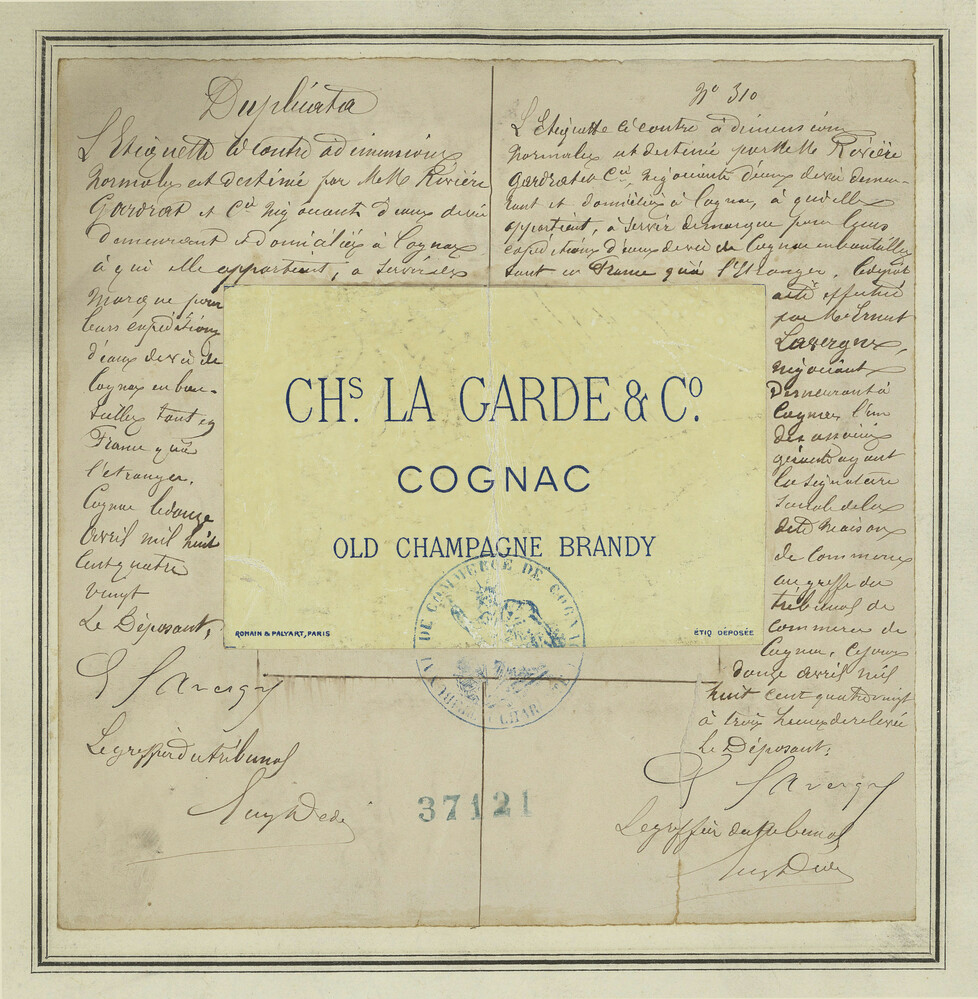 Duplicata
L'Etiquette ci contre a dimensions
normales est destinée par M.M. Rivière
Gardrat et Cie négociants d'eaux de vie
demeurant et domiciliés à Cognac
à qui elle appartient, à servir de
marque pour
leurs expéditions
d'eaux de vie de
Cognac en bou-
teilles tant en
France qu'à
l'étranger.
Cognac le douze
avril mil huit
cent quatre
vingt
Le Déposant,
E Lavergne
Le greffier du tribunal
No 310
L'Etiquette ci contre a dimensions
normales est destinée par M.M. Rivière
Gardrat et Cie, négociants d'eaux de vie demeu-
rant et domiciliés à Cognac, à qui elle
appartient, à servir de marque pour leurs
expéditions d'eaux de vie de Cognac en bouteilles
tant en France qu'à l'Etranger. Le dépôt
a été effectué
par Mr Ernest
Lavergne,
négociant
demeurant à
Cognac, l'un
des associés
gérants ayant
la signature
sociale de la
dite maison
de commerce
au greffe du
tribunal de
commerce de
Cognac, ce jour
douze avril mil
huit cent quatre vingt
à trois heures de relevée
Le Déposant,
E Lavergne
Le greffier du tribunal
CHS. LA GARDE & CO.
COGNAC
OLD CHAMPAGNE BRANDY
ROMAIN & PALYART, PARIS
ÉTIQ. DÉPOSÉE
TRIBUNAL DE COMMERCE DE COGNAC
CHAR
37121